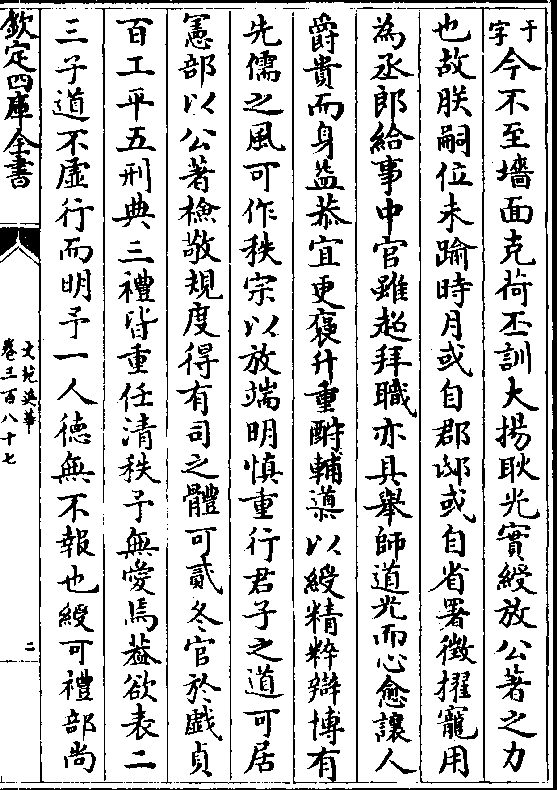 于字今不至墻面克荷丕訓大揚耿光實綬放公著之力
也故朕嗣位未踰時月或自郡邸或自省署徵擢寵用
為丞郎給事中官雖超拜職亦具舉師道光而心愈讓人
爵貴而身益恭宜更褒升重酧輔導以綬精粹辯博有
先儒之風可作秩宗以放端明慎重行君子之道可居
憲部以公著檢敬規度得有司之體可貳冬官於戲貞
百工平五刑典三禮皆重任清秩予無愛焉葢欲表二
三子道不虛行而明予一人德無不報也綬可禮部尚
欽定四庫全書
文苑英華
卷三百八十七
二